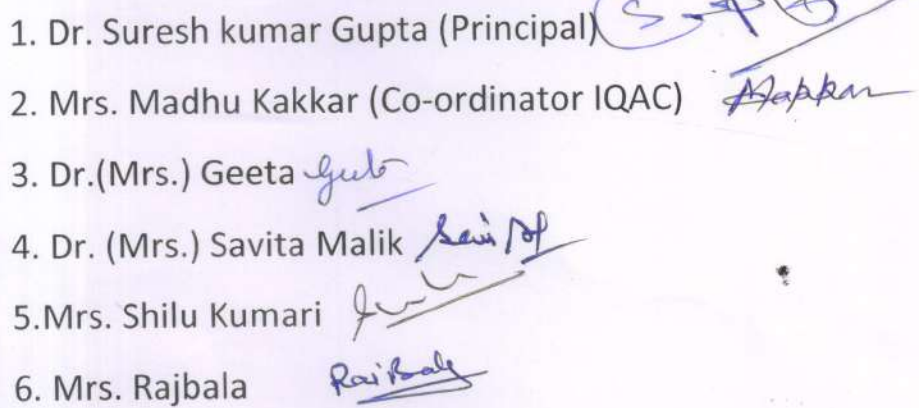 1. Dr. Suresh kumar Gupta (Principal)
2. Mrs. Madhu Kakkar (Co-ordinator IQAC)
3. Dr.(Mrs.) Geeta
4. Dr. (Mrs.) Savita Malik
5.Mrs. Shilu Kumari
6. Mrs. Rajbala RajBala